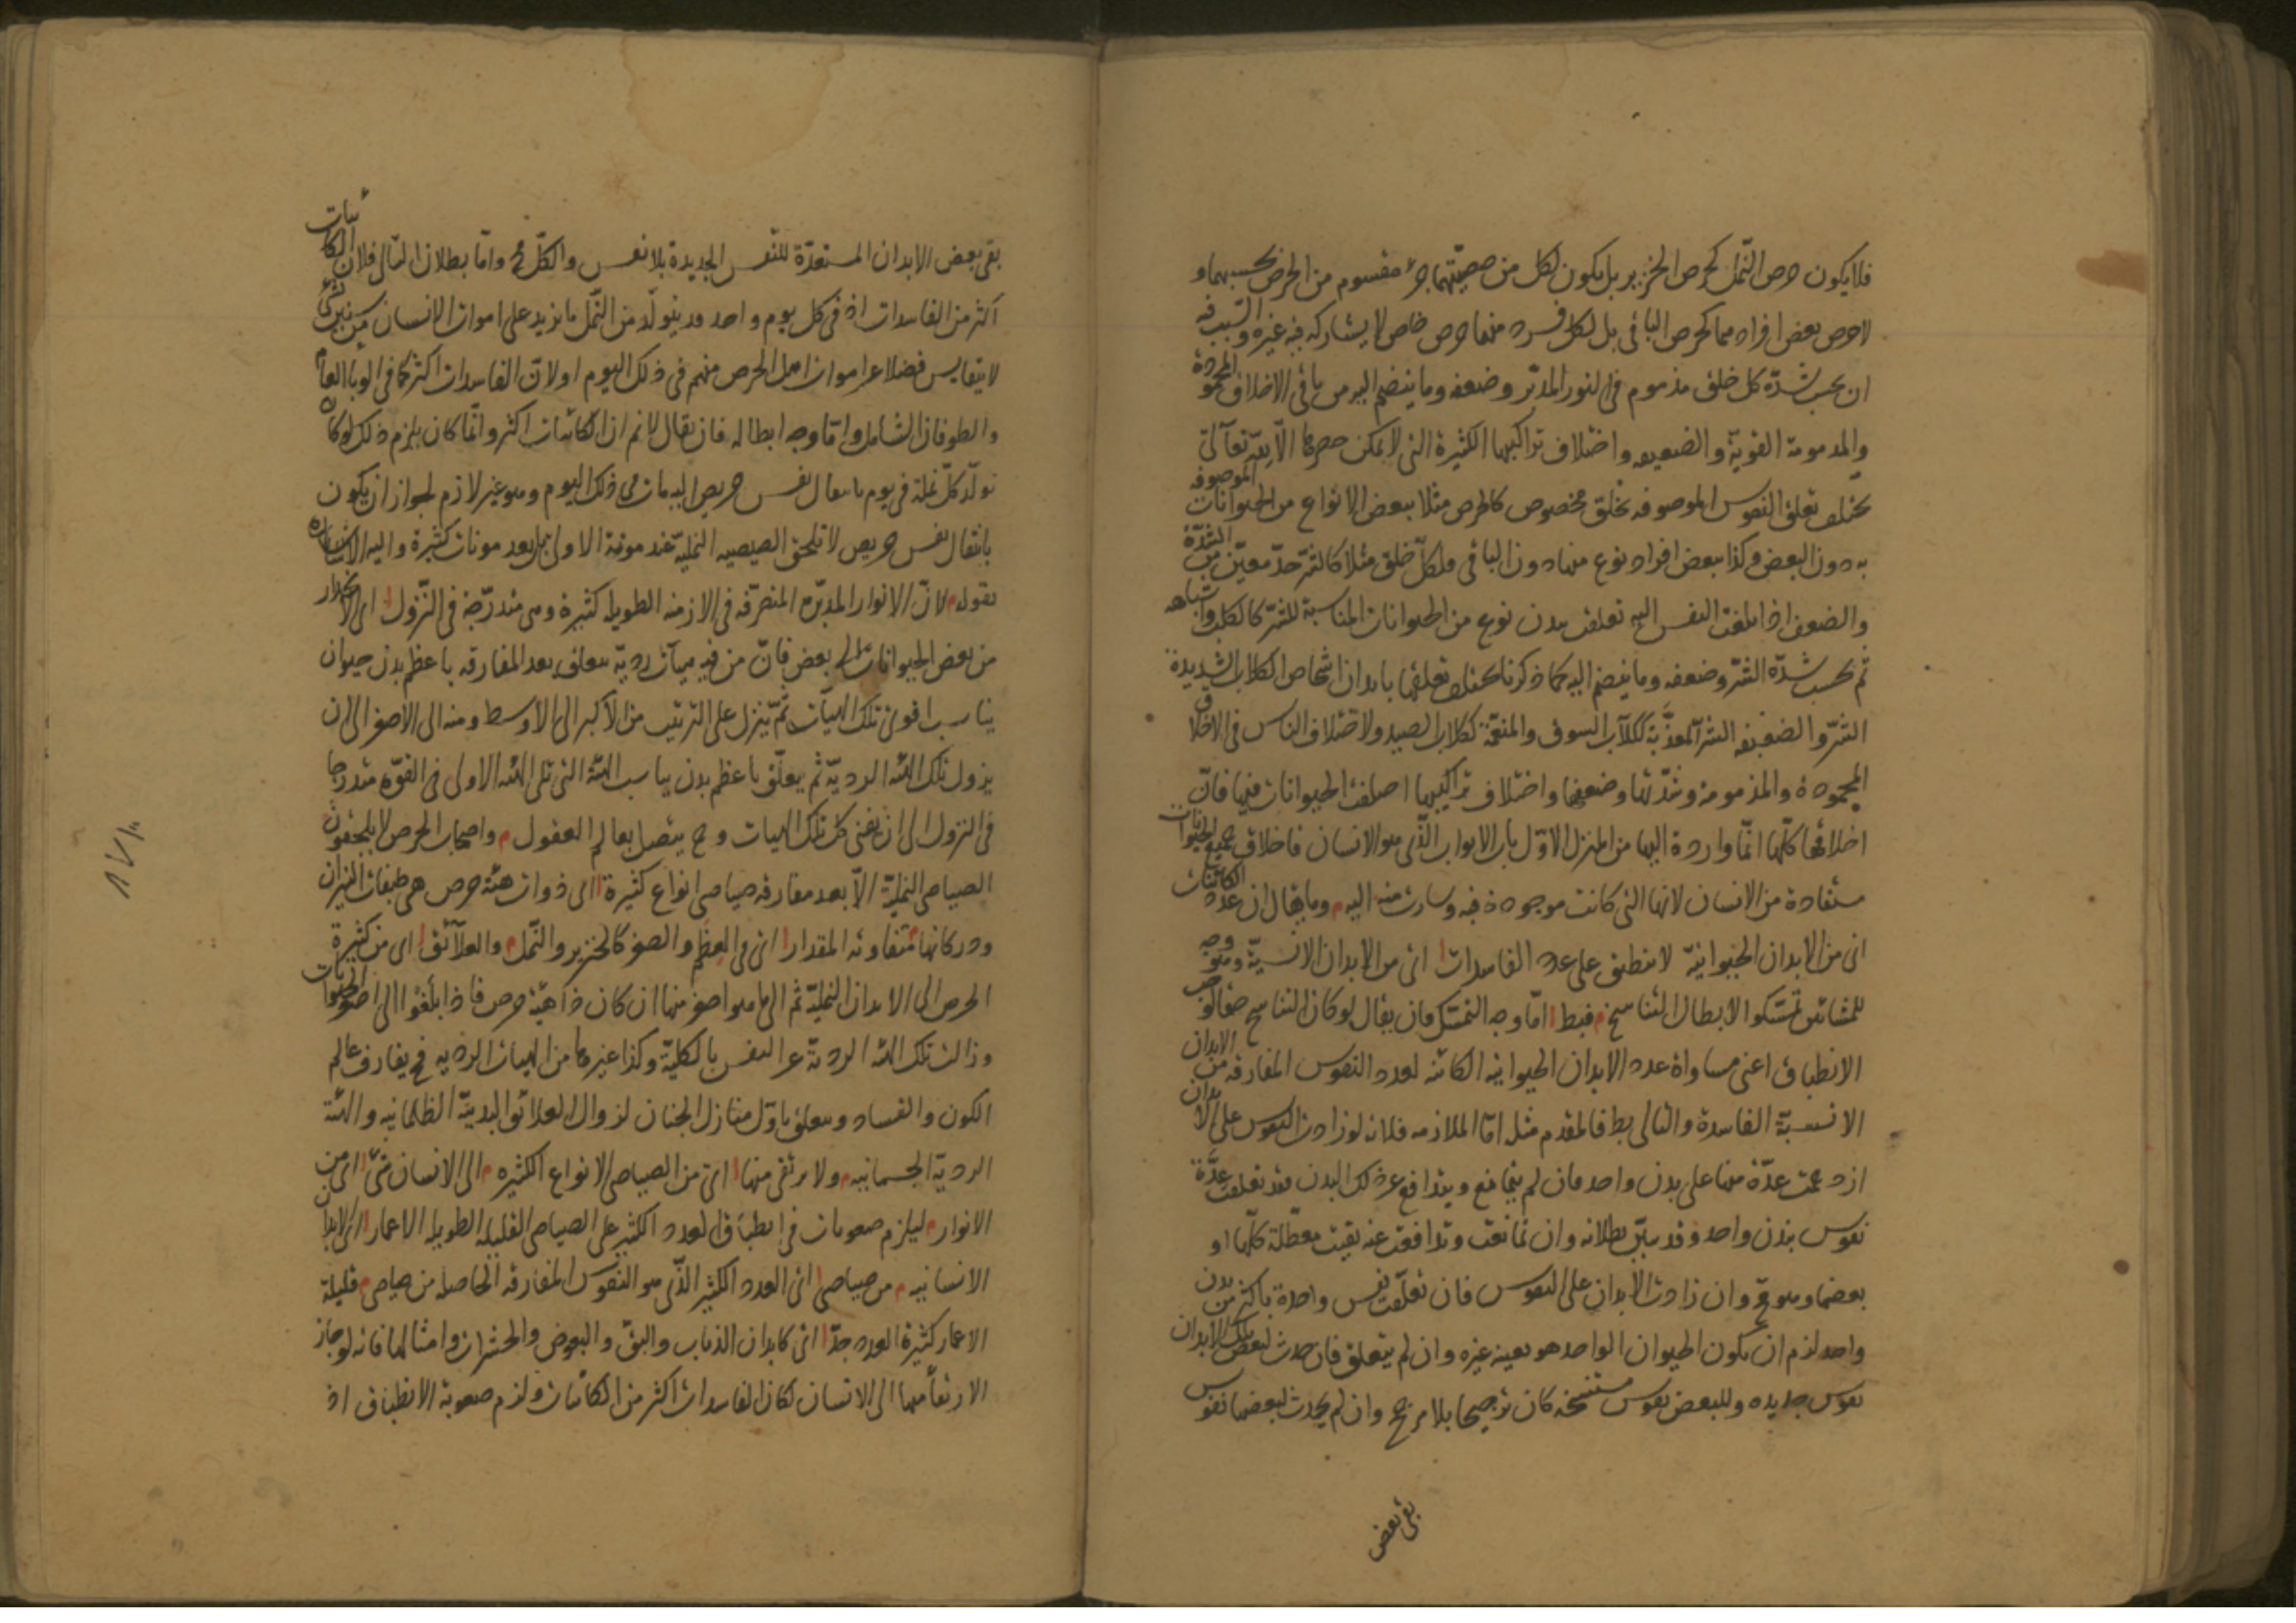 فلا يكون حرص النمل كحرص الخنزير بل يكون لكل من صيصيتهما جزء مقسوم من الحرص بحسبهما و
لا حرص بعض افراد مما كحرص الباقي بل لكل فرد منهما حرص خاص لا يشاركه فيه غيره والسبب فيه
ان بحسب شدّة كل خلق مذموم في النور المدبّر وضعفه وما ينضم اليه من باقي الاخلاق المحمودة
والمذمومة القوية والضعيفه واختلاف تراكيبها الكثيرة التي لا يمكن حصرها الّا لله تعالى
يختلف تعلق النفوس الموصوفه بخلق مخصوص كالحرص مثلا ببعض الانواع من الحيوانات الموصوفه
به دون البعض وكذا ببعض افراد نوع منها دون الباقي ولكلّ خلق مثلا كالشرّ حدّ معيّن من الشدّة
والضعف اذا بلغت النفس اليه تعلقت ببدن نوع من الحيوانات المناسبة للشرّ كالكلب واشباهه
ثم بحسب شدّة الشرّ وضعفه وما ينضم اليه كما ذكرنا يختلف تعلقها بابدان اشخاص الكلاب الشديدة
الشرّ والضعيفه الشر المعذّبة ككلاب السوق والمنعّمة ككلاب الصيد ولاختلاف الناس في الاخلاق
المحمودة والمذمومة وشدّتها وضعفها واختلاف تراكيبها اختلفت الحيوانات فيها فانّ
اخلاقها كلّها انّما واردة اليها من المنزل الاوّل باب الابواب الذّي هو الانسان فاخلاق جميع الحيوانات
مستفادة من الانسان لانها التي كانت موجودة فيه وسارت منه اليه م وما يقال ان عدد الكائنات
اى من الابدان الحيوانيّة لا ينطبق على عدد الفاسدات ا اى من الابدان الانسيّة وهو وجه
للمشائين تمسّكوا لابطال التناسخ م فبط ا امّا وجه التمسّك فان يقال لو كان التناسخ حقا لوجب
الانطباق اعنى مساواة عدد الابدان الحيوانيه الكائنه لعدد النفوس المفارقه من الابدان
الانسيّة الفاسدة والتالى بط فالمقدم مثله امّا الملازمه فلانه لو زادت النفوس على الابدان
ازدحمت عدّة منها على بدن واحد فان لم يتمانع ويتدافع عن ذلك البدن فقد تعلقت عدّة
نفوس ببدن واحد وقد بيّن بطلانه وان تمانعت وتدافعت عنه بقيت معطّلة كلّها او
بعضها وهو مح وان زادت الابدان على النفوس فان تعلّقت نفس واحدة باكثر من بدن
واحد لزم ان يكون الحيوان الواحد هو بعينه غيره وان لم يتعلق فان حدث لبعض تلك الابدان
نفوس جديده وللبعض نفوس مستنسخه كان ترجيحا بلا مرجح وان لم يحدث لبعضها نفوس
بقى بعض
بقى بعض الابدان المستعدّة للنفس الجديدة بلا نفس والكلّ مح وامّا بطلان التالى فلان الكائنات
اكثر من الفاسدات اذ فى كل يوم واحد قد يتولّد من النّمل ما يزيد على اموات الانسان من سنين بشئ
لا يتقايس فضلا عن اموات اهل الحرص منهم فى ذلك اليوم او لانّ الفاسدات اكثر كما فى الوباء العام
والطوفان الشامل وامّا وجه ابطاله فان يقال لانم ان الكائنات اكثر وانّما كان يلزم ذلك لو كان
تولّد كلّ نملة فى يوم بانتقال نفس حريص اليه مات فى ذلك اليوم وهو غير لازم لجواز ان يكون
بانتقال نفس حريص لا تلحق الصيصيه النمليّة عند موته الاولى بل بعد موتات كثيرة واليه الاشاره
بقوله م لانّ الانوار المدبّره المتصرّفه فى الازمنه الطويله كثيرة وهى متدرّجة فى النّزول ا اى الانحدار
من بعض الحيوانات الى بعض فانّ من فيه هيآت رديّة يتعلق بعد المفارقه باعظم بدن حيوان
يناسب اقوى تلك الهيآت ثمّ ينزل على الترتيب من الاكبر الى الاوسط ومنه الى الاصغر الى ان
يزول تلك الهيئه الرديّة ثم يتعلّق باعظم بدن يناسب الهيئة التى تلى الهيئه الاولى فى القوّه متدرجا
فى النزول الى ان يفنى كل تلك الهيات وح يتصل بعالم العقول م واصحاب الحرص لا يلحقون
الصياصى النمليّة الّا بعد مفارقه صياصى انواع كثيرة ا اى ذوات هيئة حرص هى طبقات النيران
ودركاتها م متفاوته المقدار ا اى فى العظم والصغر كالخنزير والنّمل م والعلآئق ا اى من كثيرة
الحرص الى الابدان النمليّة ثم الى ما هو اصغر منها ان كان ذا هيئة حرص فاذا بلغوا الى اصغر الحيوانات
وزالت تلك الهيئه الرديّة عن النفس بالكليّة وكذا غيرها من الهيات الرديه فح يفارق عالم
الكون والفساد ويتعلق باوّل منازل الجنان لزوال العلائق البدنيّة الظلمانيه والهيئة
الرديّة الجسمانيه م ولا يرتقى منها ا اى من الصياصى الانواع الكثيره م الى الانسان شئ ا اى من
الانوار م ليلزم صعوبات فى انطباق العدد الكثير على الصياصى القليله الطويله الاعمار ا اى الابدان
الانسانيه م من صياصى ا اى العدد الكثير الذّى هو النفوس المفارقه الحاصله من صياصى م قليلة
الاعمار كثيرة العدد جدّا ا اى كابدان الذباب والبقّ والبعوض والحشرات وامثالها فانه لو جاز
الارتقاء منها الى الانسان لكان الفاسدات اكثر من الكائنات ولزم صعوبة الانطباق اذ